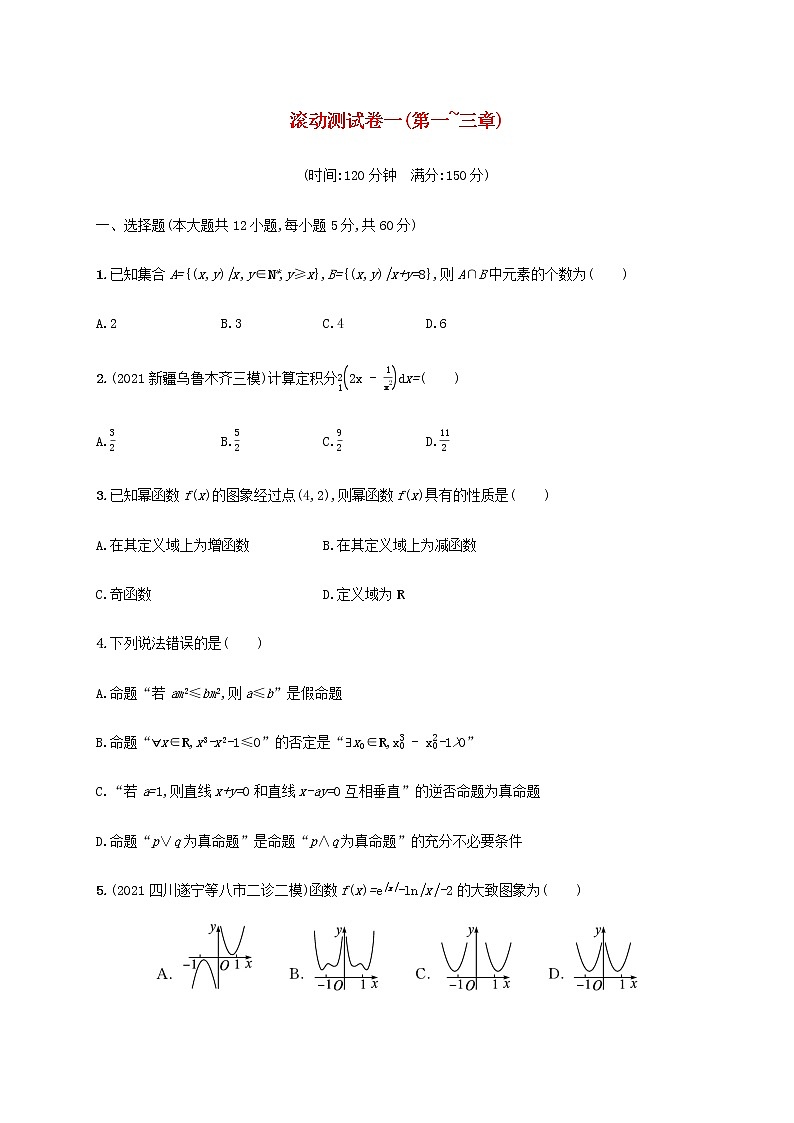 滚动测试卷一(第一~三章)
(时间:120分钟 满分:150分)
一、选择题(本大题共12小题,每小题5分,共60分)
1.已知集合A={(x,y)|x,y∈N*,y≥x},B={(x,y)|x+y=8},则A∩B中元素的个数为( )
A.2 B.3 C.4 D.6
2.(2021新疆乌鲁木齐三模)计算定积分²₁(2x - 1/x²)dx=( )
A.3/2 B.5/2 C.9/2 D.11/2
3.已知幂函数f(x)的图象经过点(4,2),则幂函数f(x)具有的性质是( )
A.在其定义域上为增函数 B.在其定义域上为减函数
C.奇函数 D.定义域为R
4.下列说法错误的是( )
A.命题“若am²≤bm²,则a≤b”是假命题
B.命题“∀x∈R,x³-x²-1≤0”的否定是“∃x₀∈R,x₀³ - x₀²-1>0”
C.“若a=1,则直线x+y=0和直线x-ay=0互相垂直”的逆否命题为真命题
D.命题“p∨q为真命题”是命题“p∧q为真命题”的充分不必要条件
5.(2021四川遂宁等八市二诊二模)函数f(x)=e^|x|-ln|x|-2的大致图象为( )
A. y -1 O 1 x B. y -1 O 1 x C. y -1 O 1 x D. y -1 O 1 x